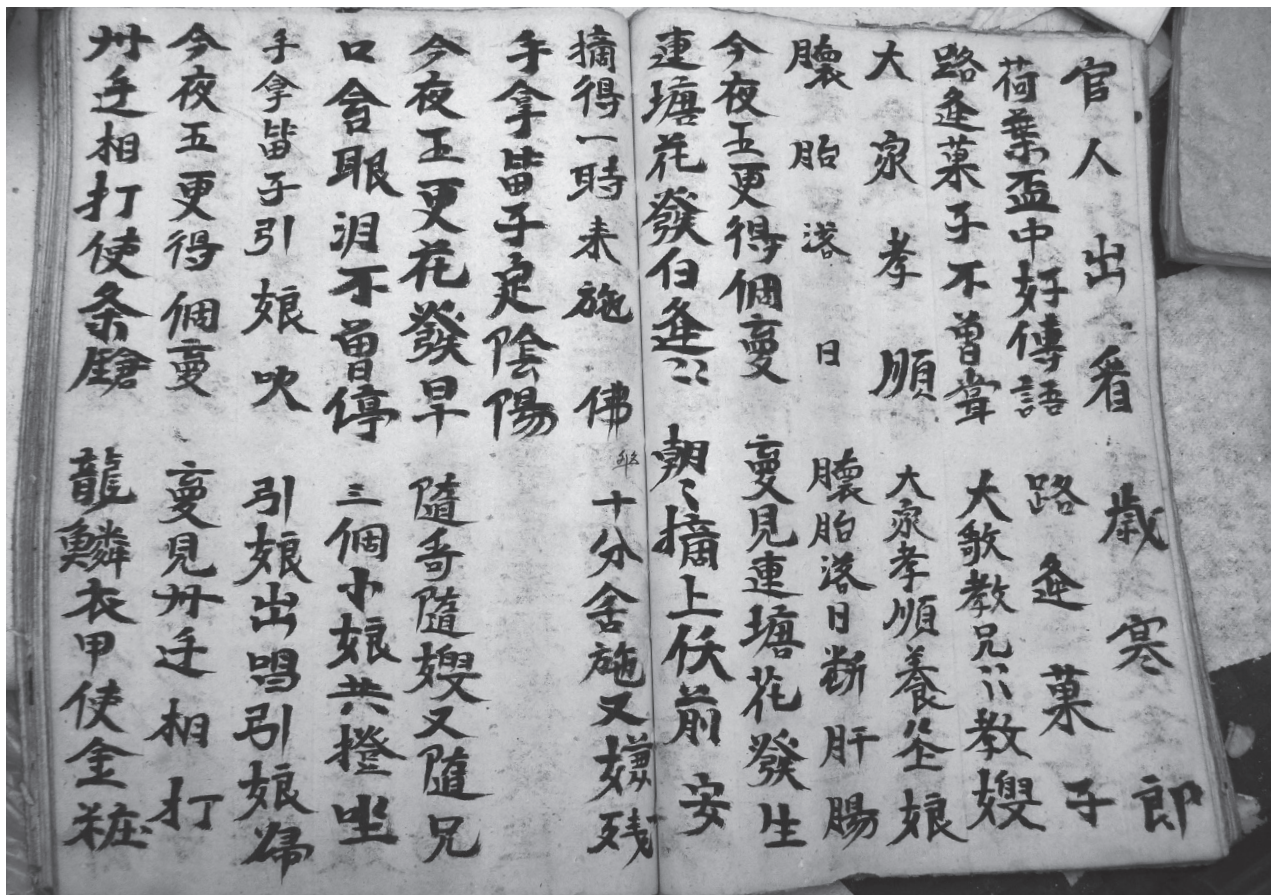 官人出看 歲寒郎
荷葉盃中好傳語 路逢菓子
路逢菓子不曾甞 大敬教兄〻教嫂
大家孝順 大家孝順養娘
懷胎落日 懷胎落日断肝腸
今夜五更得個夢 夢見連塘花發生
連塘花發白逢〻 朝〻摘上伏前安
摘得一時来施佛 十分舍施又嫌残
手拿笛子定陰陽
今夜五更花發早 隨哥隨嫂又隨兄
口含眼泪不曾停 三個小娘共橙坐
手拿笛子引娘吹 引娘出唱引娘歸
今夜五更得個夢 夢見州手相打
州手相打使条鎗 龍鱗衣甲使金粧